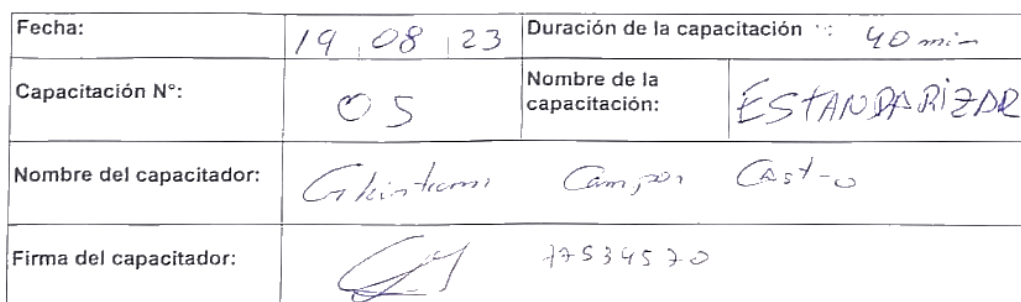 Fecha: 19 08 23 Duración de la capacitación : 40 min
Capacitación N°: 05 Nombre de la capacitación: ESTANDARIZAR
Nombre del capacitador: Campos Castro
Firma del capacitador: 77534570